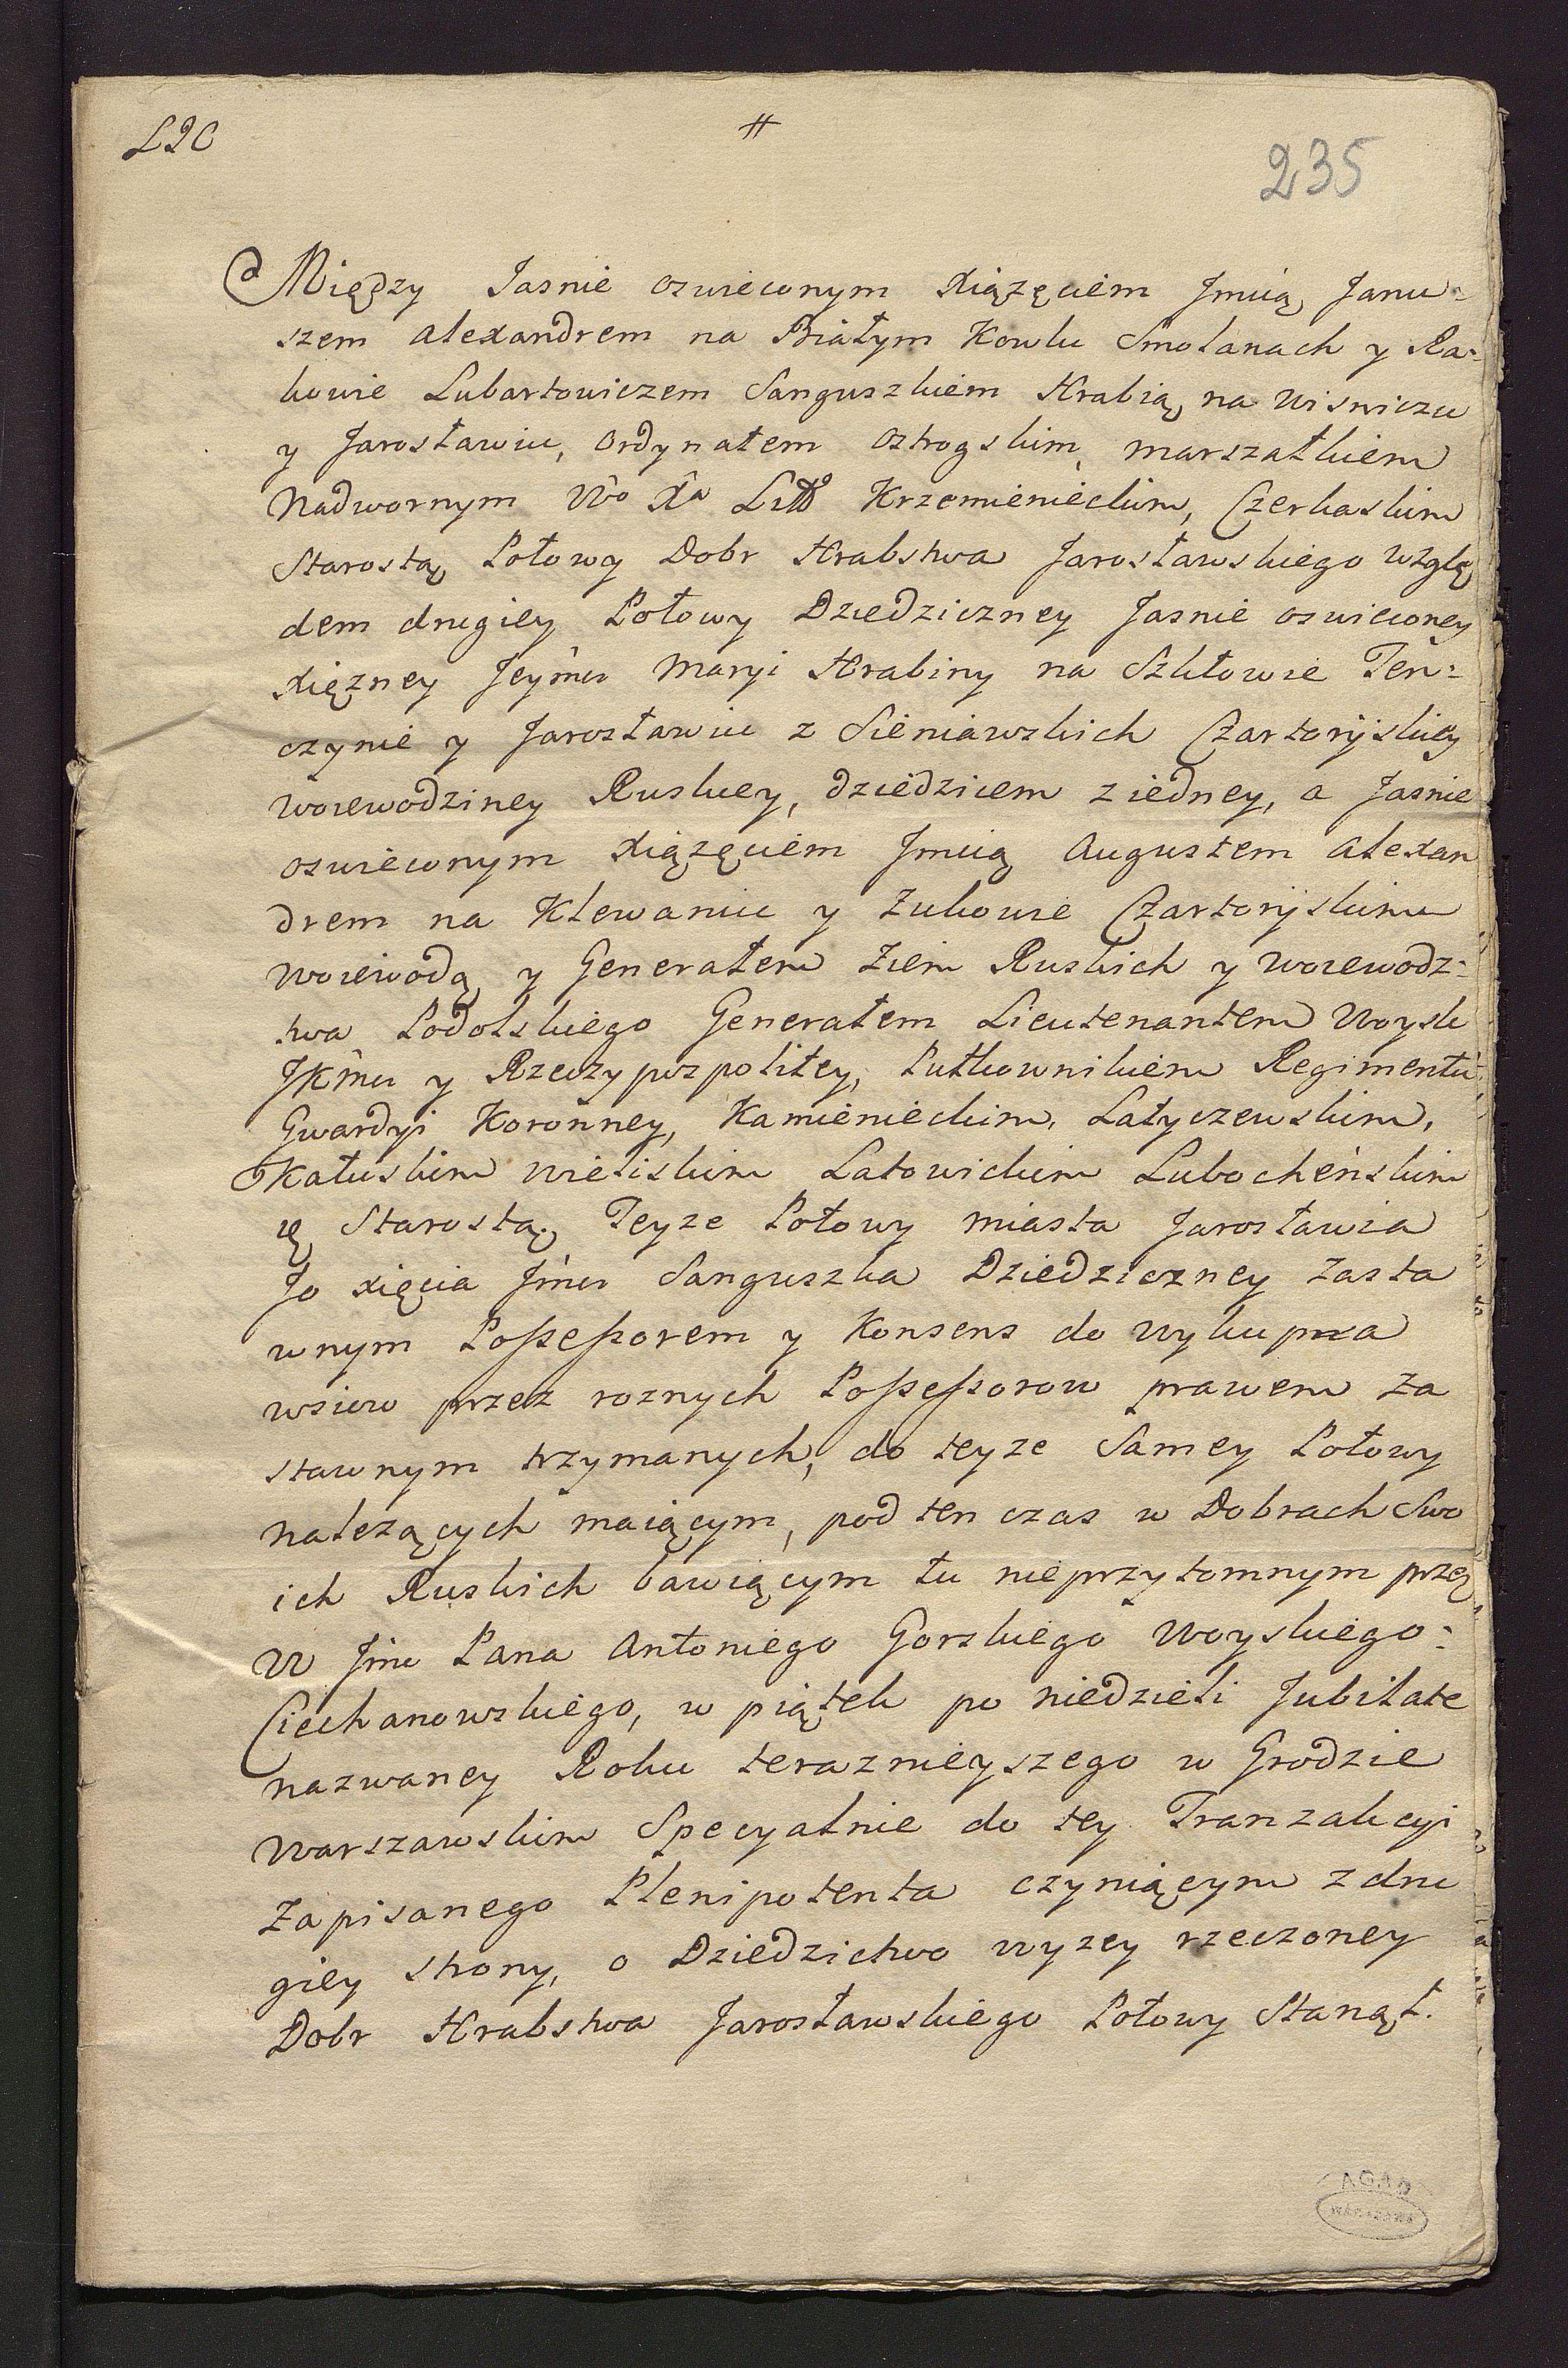 L20
#
235
Między Jasnie oswieconym Xiązęciem Jmcią Janu=
szem Alexandrem na Białym Kowlu Smolanach y Ra=
kowie Lubartowiczem Sanguszkiem Hrabią na Wisniczu
y Jarosławiu, Ordynatem Ostrogskim, marszałkiem
Nadwornym Wo Xa Litto Krzemienieckim, Czerkaskim
Starostą Połowy Dobr Hrabstwa Jarosławskiego wzglę
dem drugiey Połowy Dziedziczney Jasnie oswieconey
Xięzney Jeymci Maryi Hrabiny na Szkłowie Ten=
czynie y Jarosławiu z Sieniawskich Czartoryiskiey
Woiewodziney Ruskiey, dziedzicem z iedney, a Jasnie
oswieconym Xiązęciem Jmcią Augustem Alexan
drem na Klewaniu y Zukowie Czartoryiskim
Woiewodą y Generałem Ziem Ruskich y Woiewodz=
twa Podolskiego Generałem Lieutenantem Woysk
JKmci y Rzeczypospolitey, Pułkownikiem Regimentu
Gwardyi Koronney, Kamienieckim, Latyczewskim,
Kałuskim Wieliskim Latowickim Lubocheńskim
ię Starostą, Teyze Połowy miasta Jarosławia
Jo Xięcia Jmci Sanguszka Dziedziczney Zasta
wnym Possessorem y Konsens do wykupna
wsiow przez roznych Possessorow prawem Za
stawnym trzymanych, do teyze Samey Połowy
nalezących maiącym, pod ten czas w Dobrach Swo
ich Ruskich bawiącym tu nieprzytomnym przez
W Jmci Pana Antoniego Gorskiego Woyskiego=
Ciechanowskiego, w piątek po niedzieli Jubilate
nazwaney Roku teraznieyszego w Grodzie
Warszawskim Specyalnie do tey Tranzakcyi
Zapisanego Plenipotenta czyniącym z dru
giey strony, o Dziedzictwo wyzey rzeczoney
Dobr Hrabstwa Jarosławskiego Połowy Stanął.
AGAD
WARSZAWA